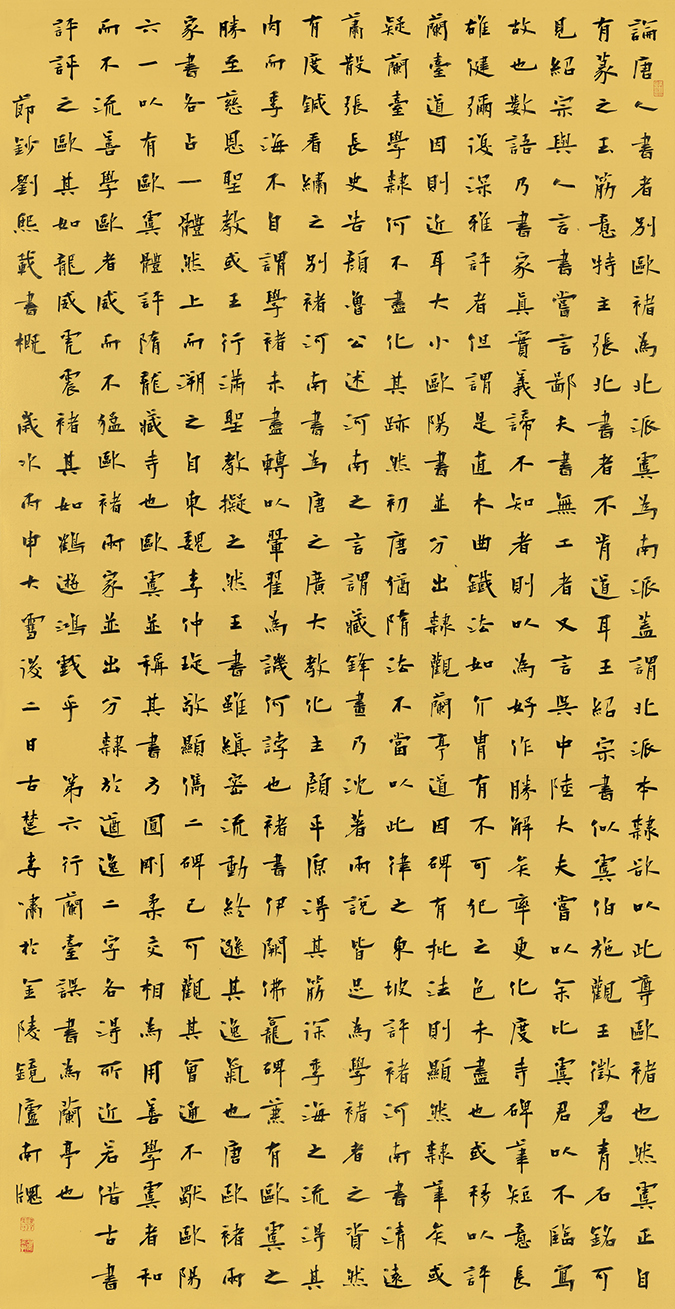 論唐人書者別歐褚為北派虞為南派蓋謂北派本隸欲以此尊歐褚也然虞正自
有篆之玉筯意特主張北書者不肯道耳王紹宗書似虞伯施觀王徵君青石銘可
見紹宗與人言書嘗言鄙夫書無工者又言吳中陸大夫嘗以余比虞君以不臨寫
故也數語乃書家真實義諦不知者則以為好作勝解矣率更化度寺碑筆短意長
雄健彌復深雅評者但謂是直木曲鐵法如介冑有不可犯之色未盡也或移以評
蘭臺道因則近耳大小歐陽書並分出隸觀蘭亭道因碑有批法則顯然隸筆矣或
疑蘭臺學隸何不盡化其跡然初唐猶隋法不當以此律之東坡評褚河南書清遠
蕭散張長史告顏魯公述河南之言謂藏鋒畫乃沈著兩說皆足為學褚者之資然
有度鍼看繡之別褚河南書為唐之廣大教化主顏平原得其筋徐季海之流得其
肉而季海不自謂學褚未盡轉以翬翟為譏何誖也褚書伊闕佛龕碑兼有歐虞之
勝至慈恩聖教或王行滿聖教擬之然王書雖縝密流動終遜其逸氣也唐歐褚兩
家書各占一體然上而溯之自東魏李仲琁敬顯儁二碑已可觀其會通不獨歐陽
六一以有歐虞體評隋龍藏寺也歐虞並稱其書方圓剛柔交相為用善學虞者和
而不流善學歐者威而不猛歐褚兩家並出分隸於遒逸二字各得所近若借古書
評評之歐其如龍威虎震褚其如鶴遊鴻戲乎 第六行蘭臺誤書為蘭亭也
節鈔劉熙載書概 歲次丙申大雪後二日古楚李嘯於金陵鏡廬南牕